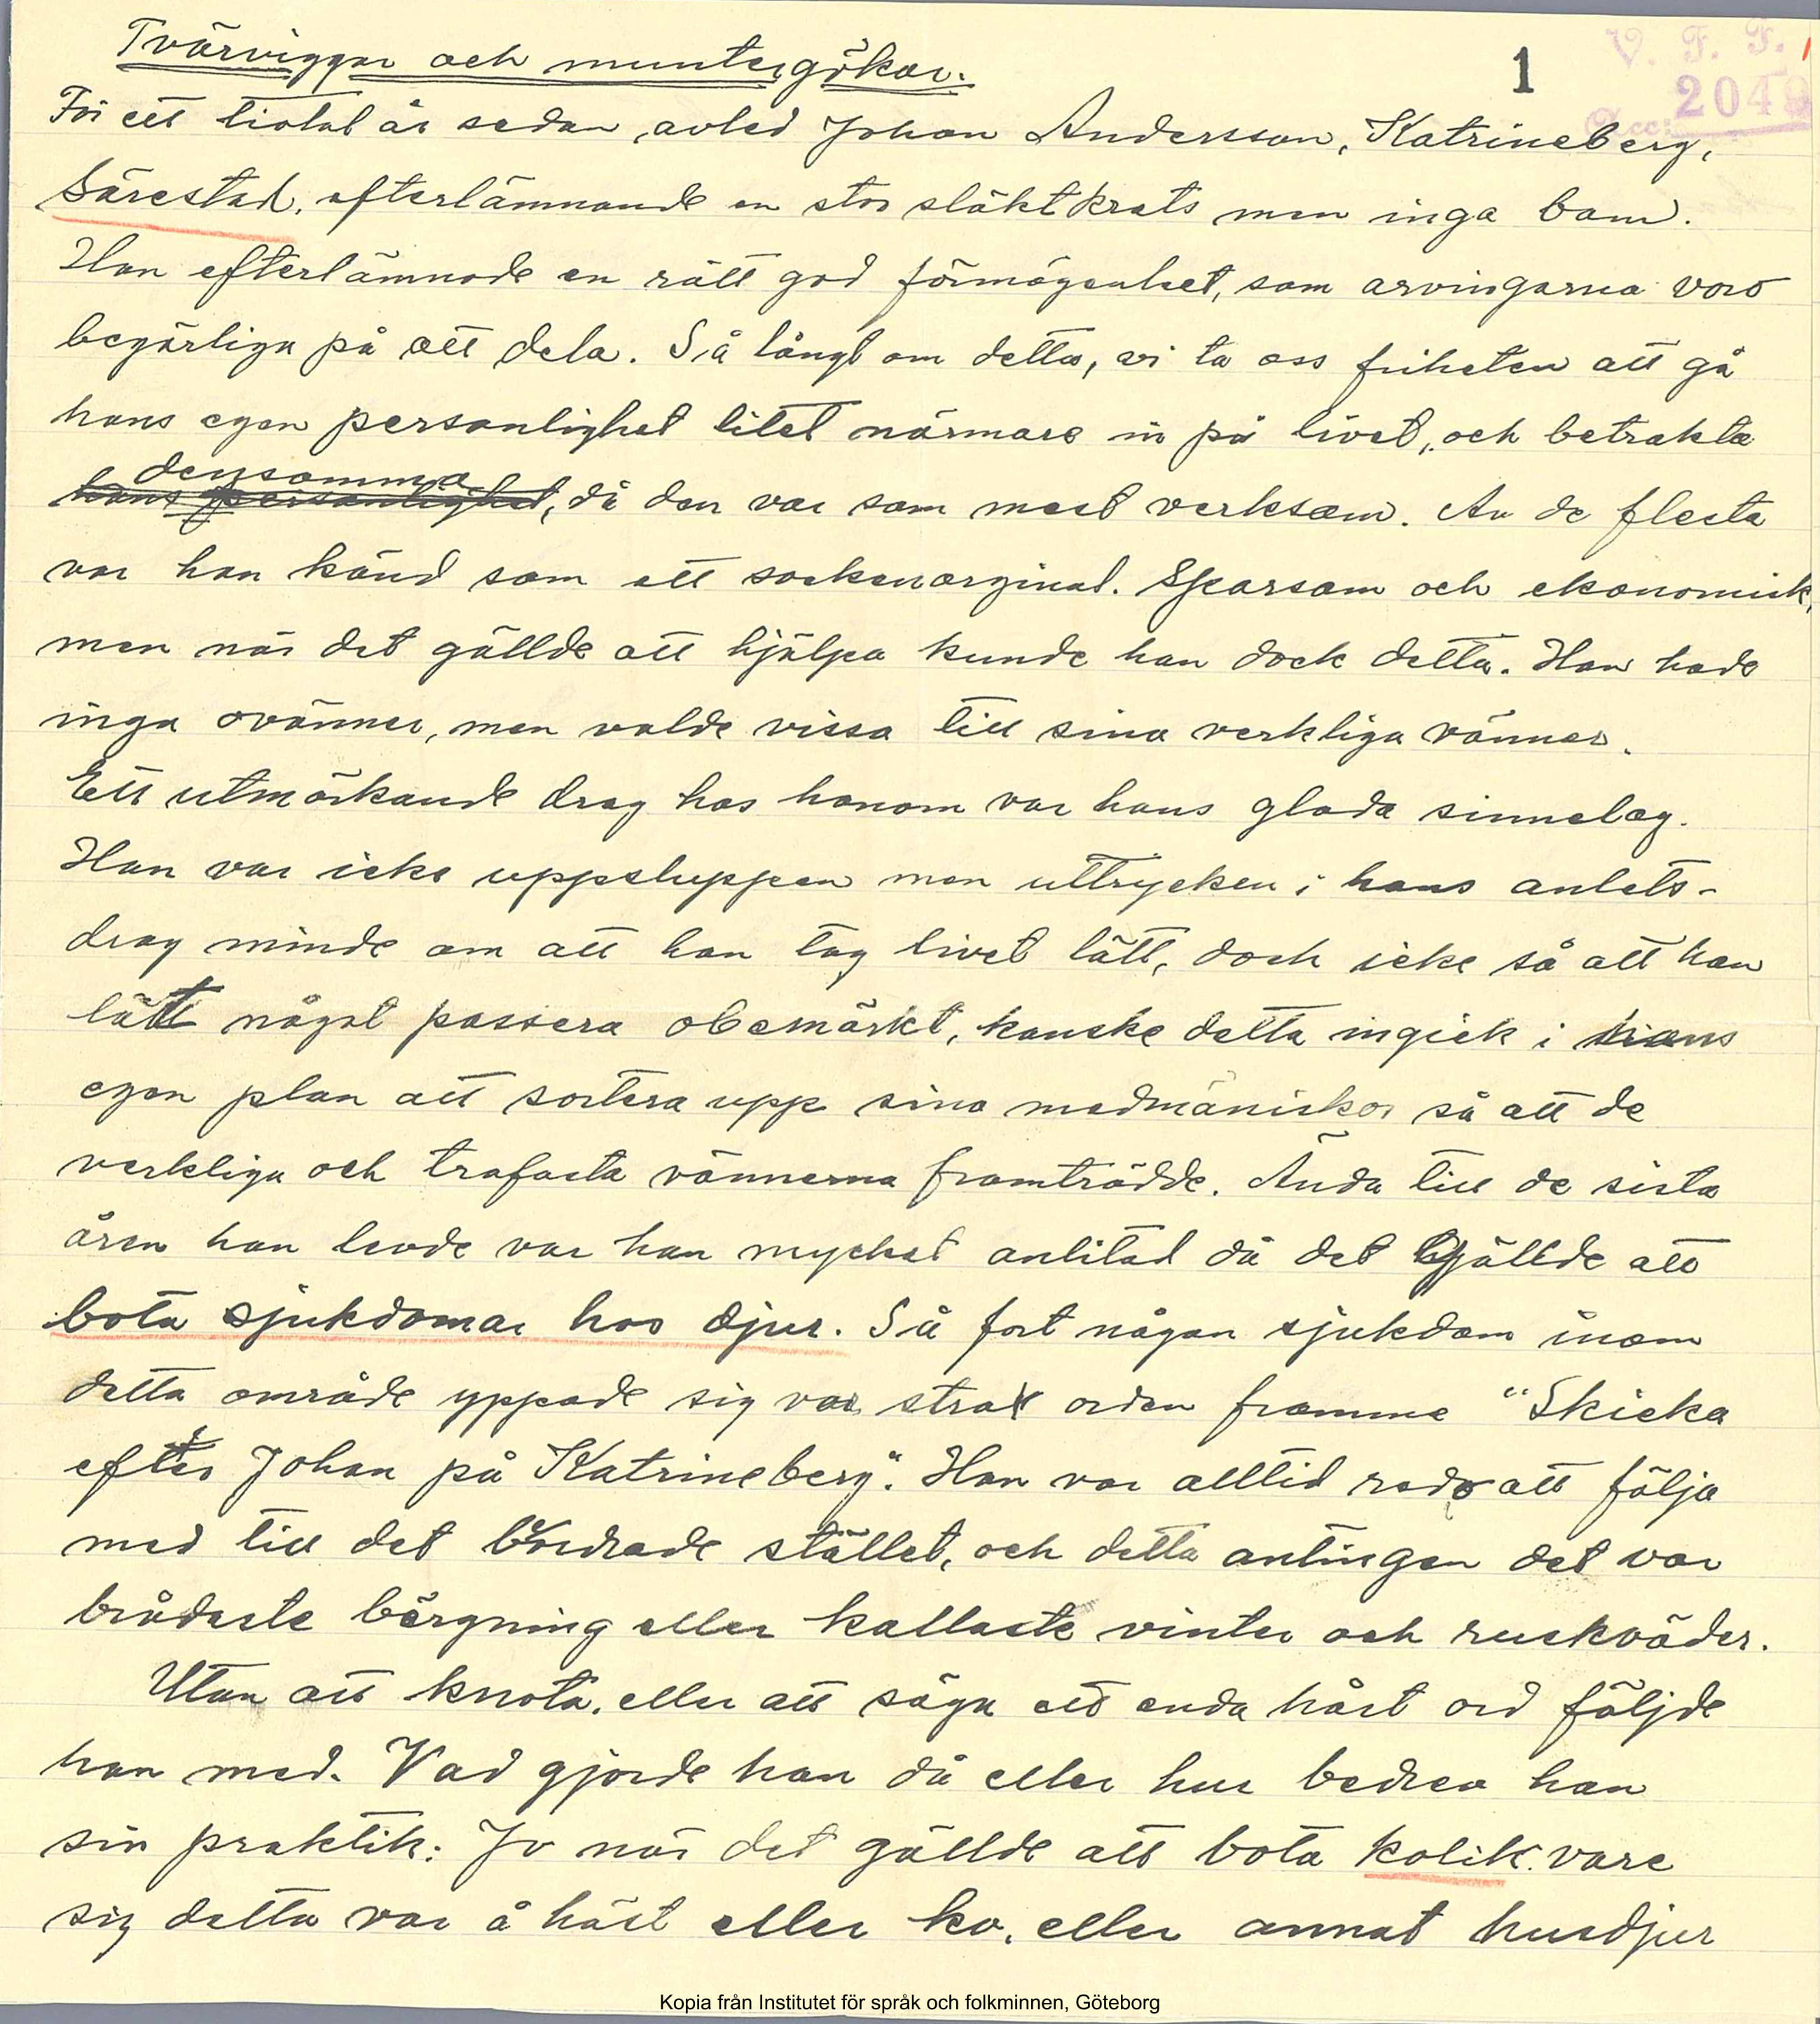 Tvärviggar och muntergökar.
1
V. F. F.
Acc: 2049
För ett tiotal år sedan avled Johan Andersson, Katrineberg,
Särestad, efterlämnande en stor släktkrets men inga barn.
Han efterlämnode en rätt god förmögenhet, som arvingarna voro
begärliga på att dela. Så långt om detta, vi ta oss friheten att gå
hans egen personlighet litet närmare in på livet, och betrakta
densamma
hans personlighet, då den var som mest verksam. Av de flesta
var han känd som ett sockenorginal. Sparsam och ekonomisk,
men när det gällde att hjälpa kunde han dock detta. Han hade
inga ovänner, men valde vissa till sina verkliga vänner.
Ett utmärkande drag hos honom var hans glada sinnelag.
Han var icke uppsluppen men uttrycken i hans anlets-
drag minde om att han tog livet lätt, dock icke så att han
lätt något passera obemärkt, kanske detta ingick i hans
egen plan att sortera upp sina medmäniskor så att de
verkliga och trofasta vännerna framträdde. Ända till de sista
åren han levde var han mycket anlitad då det gällde att
bota sjukdomar hos djur. Så fort någon sjukdom inom
detta område yppade sig var strax orden framme "Skicka
efter Johan på Katrineberg". Han var alltid redo att följa
med till det beordrade stället, och detta antingen det var
brådaste bärgning eller kallaste vinter och ruskväder.
Utan att knota, eller att säga ett enda hårt ord följde
han med. Vad gjorde han då eller hur bedrev han
sin praktik: Jo när det gällde att bota kolik, vare
sig detta var å häst eller ko, eller annat husdjur
Kopia från Institutet för språk och folkminnen, Göteborg